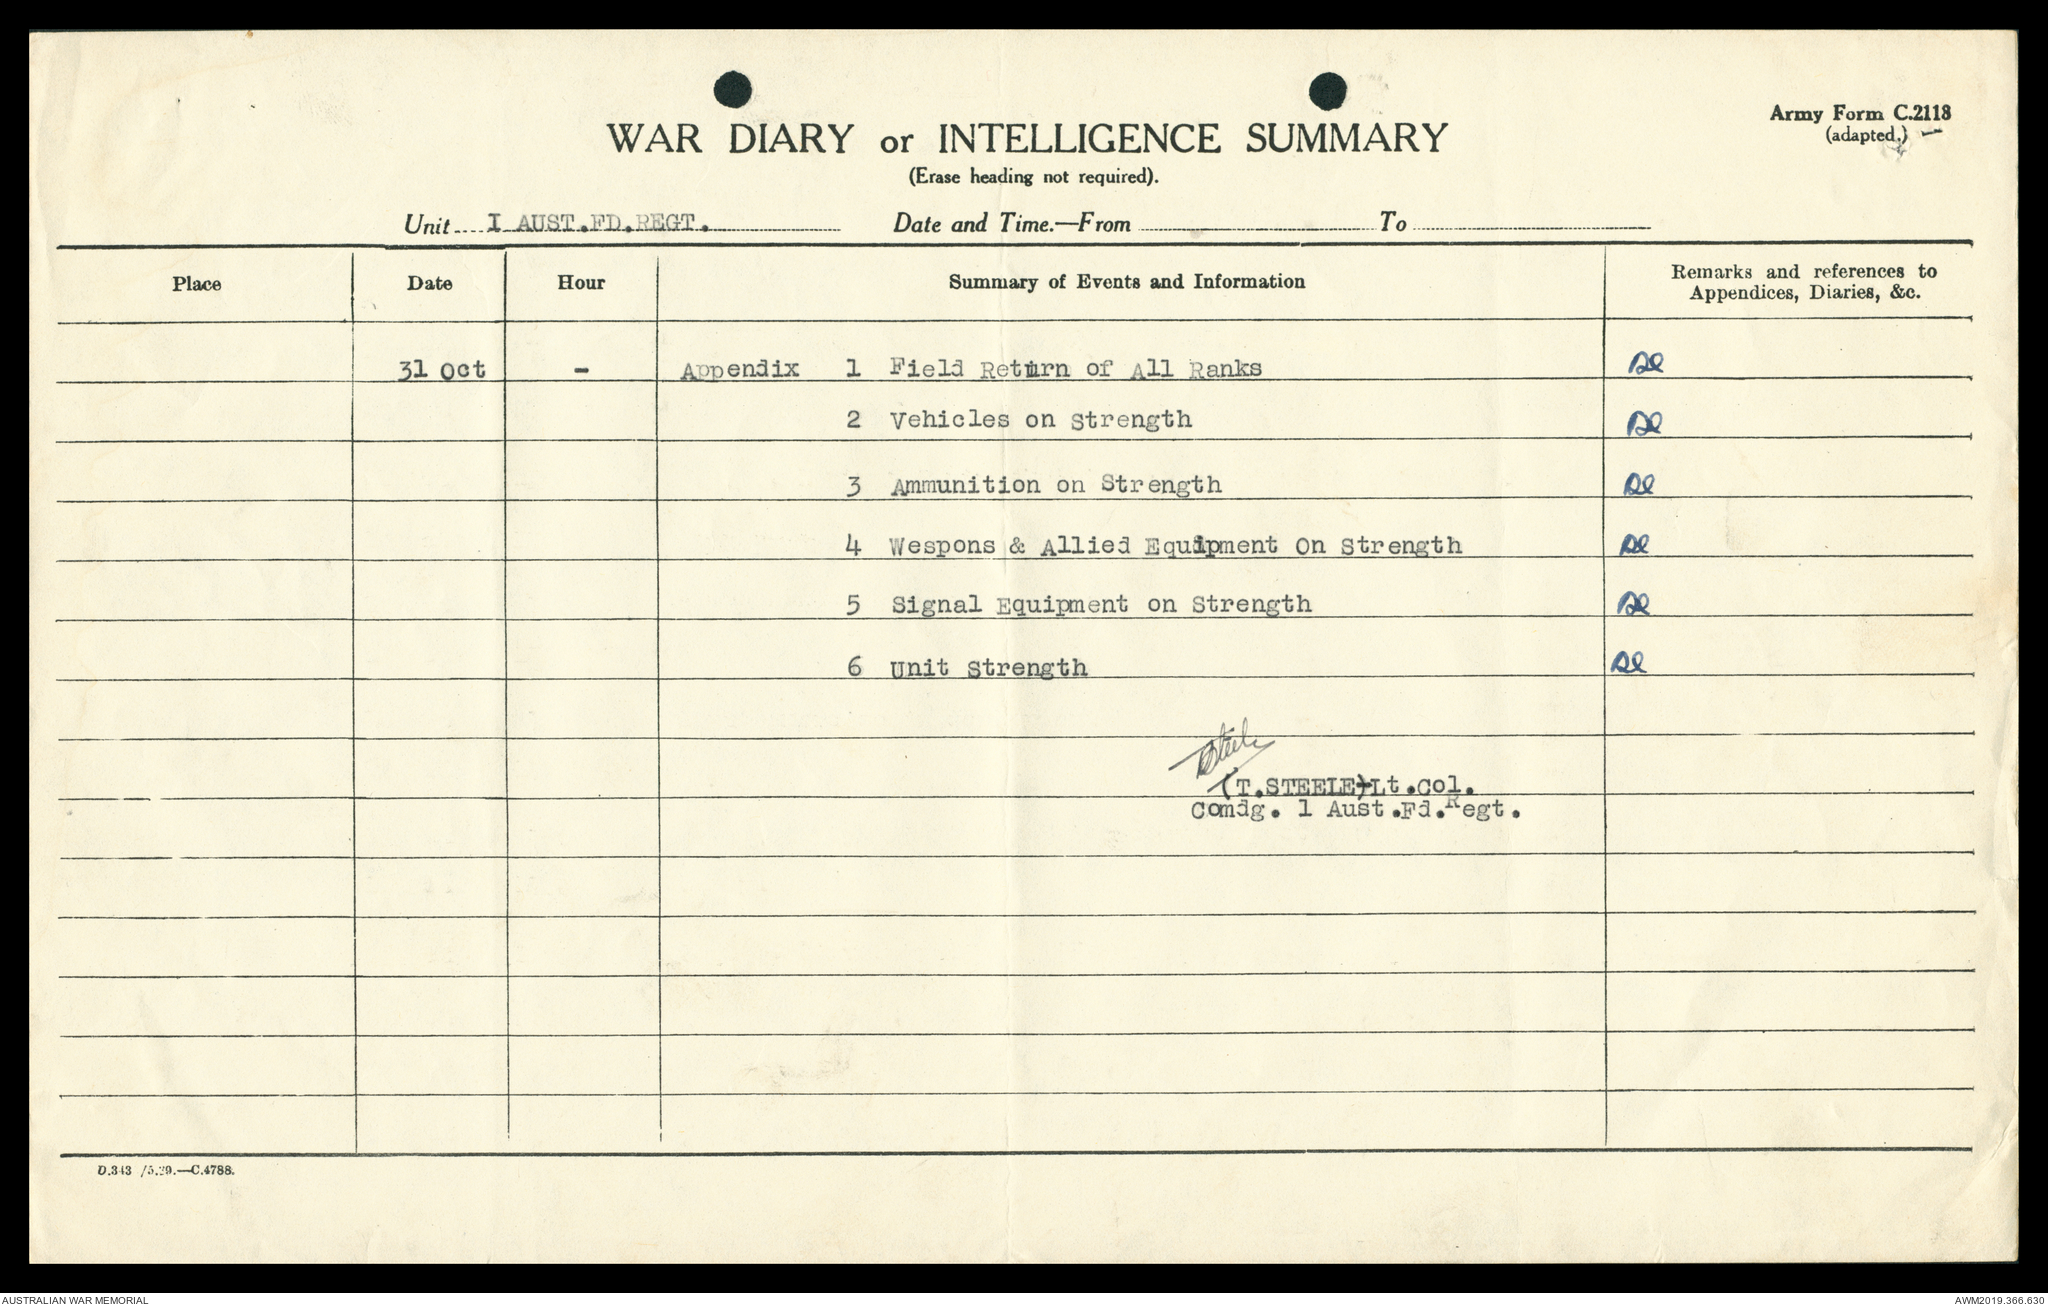 Army Form C.2118
(adapted.)
WAR DIARY or INTELLIGENCE SUMMARY
(Erase heading not required).
Unit I AUST.FD.REGT. Date and Time.—From To
Place Date Hour Summary of Events and Information Remarks and references to
Appendices, Diaries, &c.
31 Oct - Appendix 1 Field Return of All Ranks
2 Vehicles on Strength
3 Ammunition on Strength
4 Wespons & Allied Equipment On Strength
5 Signal Equipment on Strength
6 Unit Strength
Steele
(T.STEELE) Lt.Col.
Comdg. 1 Aust.Fd.Regt.
D.343 /5.39.—C.4788.
AUSTRALIAN WAR MEMORIAL AWM2019.366.630